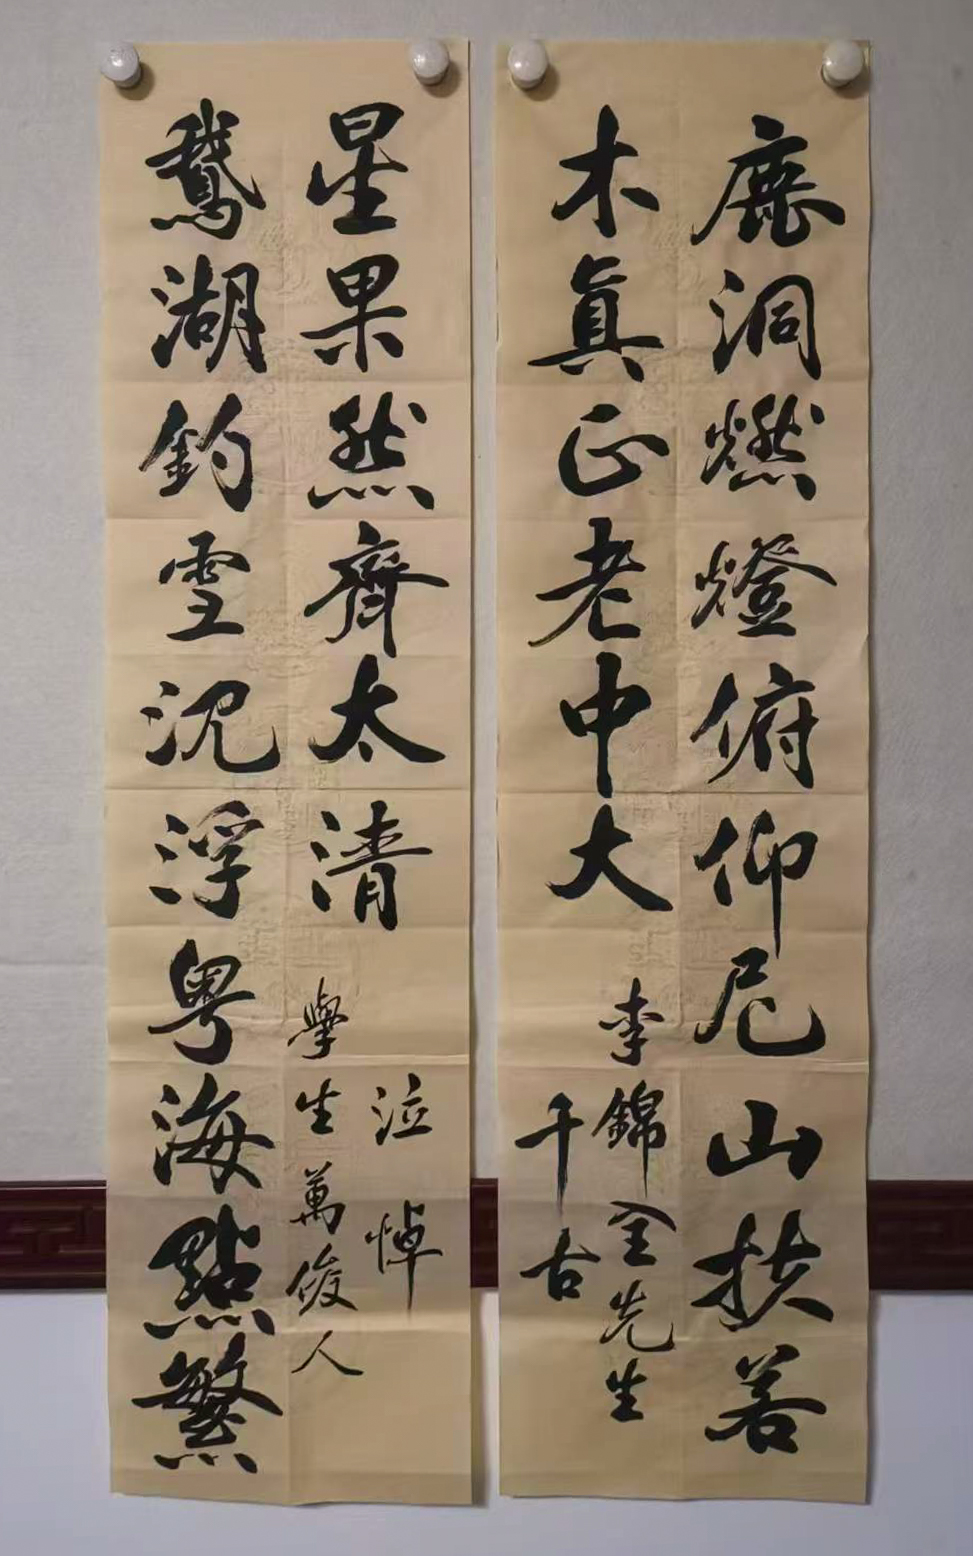 鹿洞燃燈俯仰尼山扶若
木眞正老中大
李錦全先生
千古
鵞湖釣雪沈浮粵海點繁
星果然齊太清
學生萬俊人
泣悼